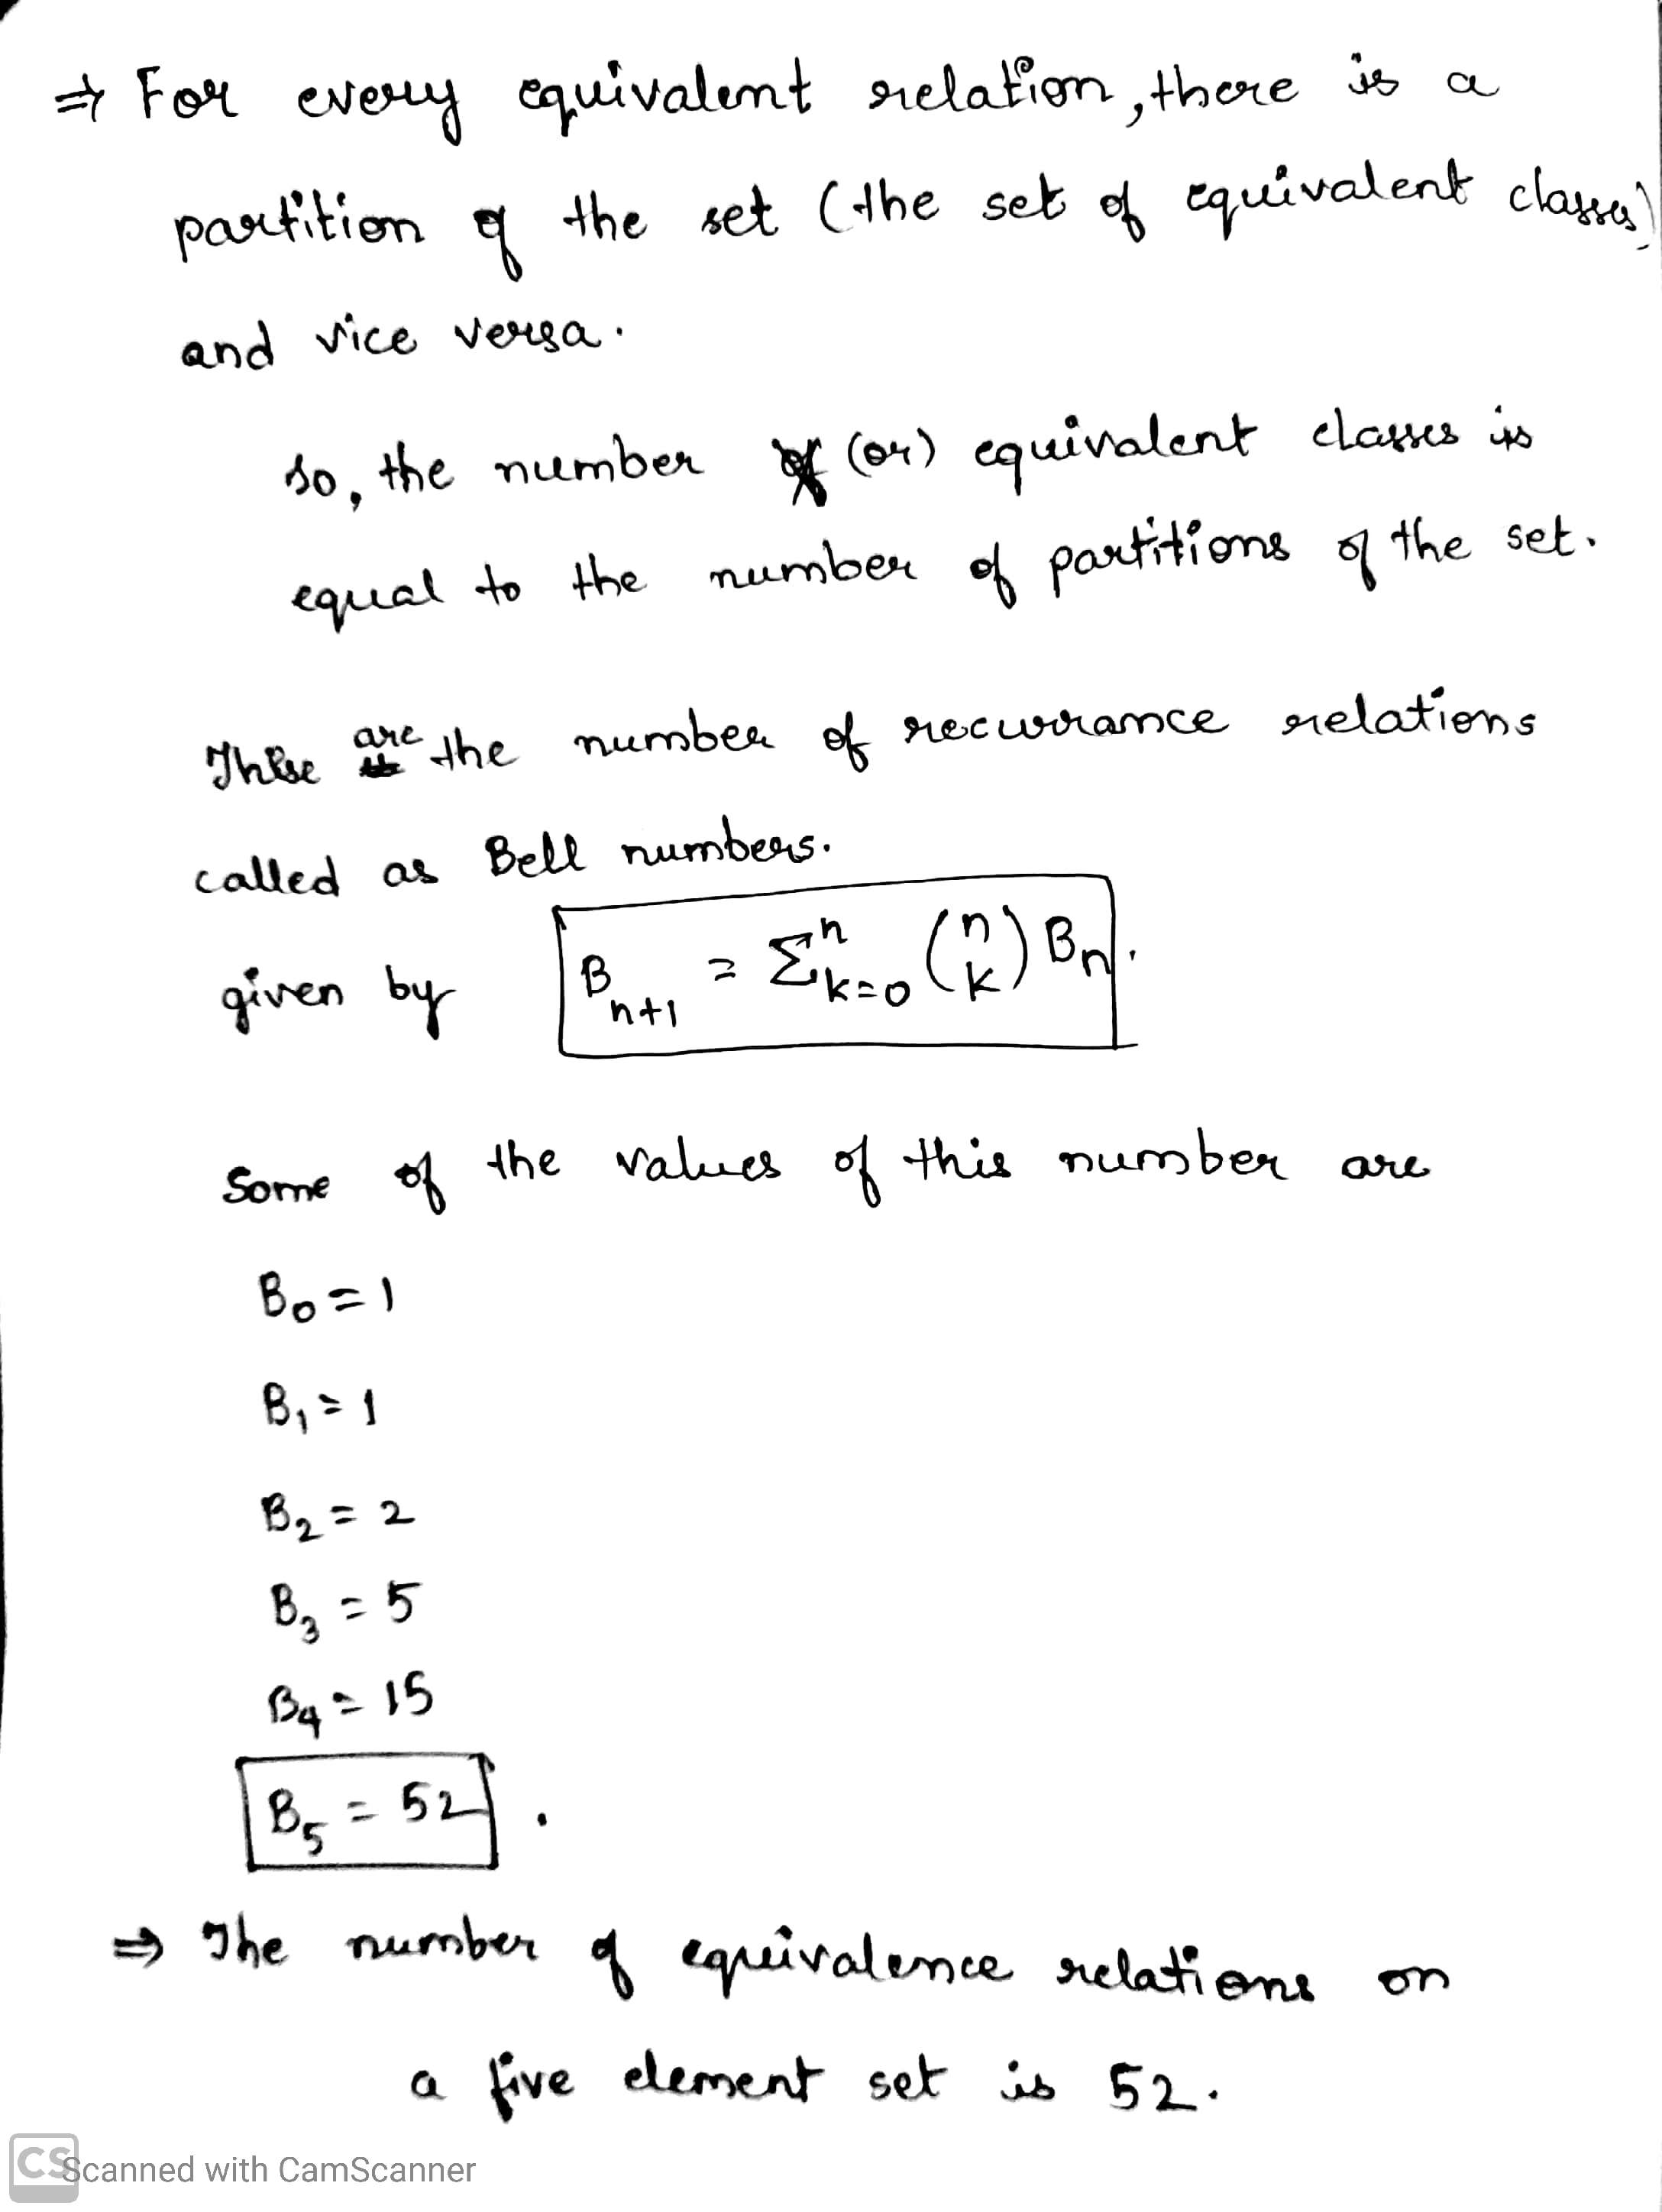 ⇒ For every equivalent relation, there is a
partition of the set (the set of equivalent classes)
and vice versa.
so, the number of (or) equivalent classes is
equal to the number of partitions of the set.
These are the number of recurrance relations
called as Bell numbers.
given by B_{n+1} = Σ^n_{k=0} (n k) B_n.
Some of the values of this number are
B_0 = 1
B_1 = 1
B_2 = 2
B_3 = 5
B_4 = 15
B_5 = 52.
⇒ The number of equivalence relations on
a five element set is 52.
CS Scanned with CamScanner